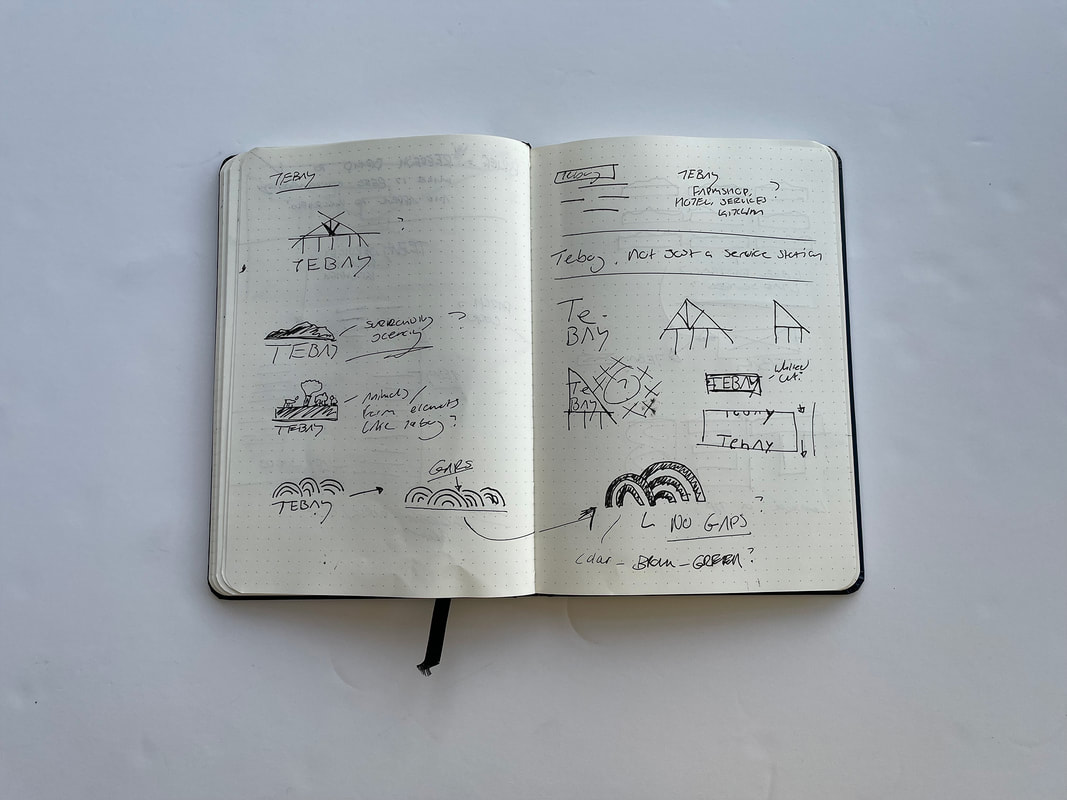 TEBAY
?
TEBAY
SURROUNDING
SCENERY
?
TEBAY
ANIMALS/
FARM elements
LIKE Tebay?
TEBAY
TEBAY
GAPS
Tebay
TEBAY
FARMSHOP,
HOTEL, SERVICES
KITCHEN
?
Tebay. Not just a service station
Te.
BAY
Te
BAY
?
TEBAY
TEBAY
TEBAY
?
NO GAPS
Colour - Brown - GREEN?